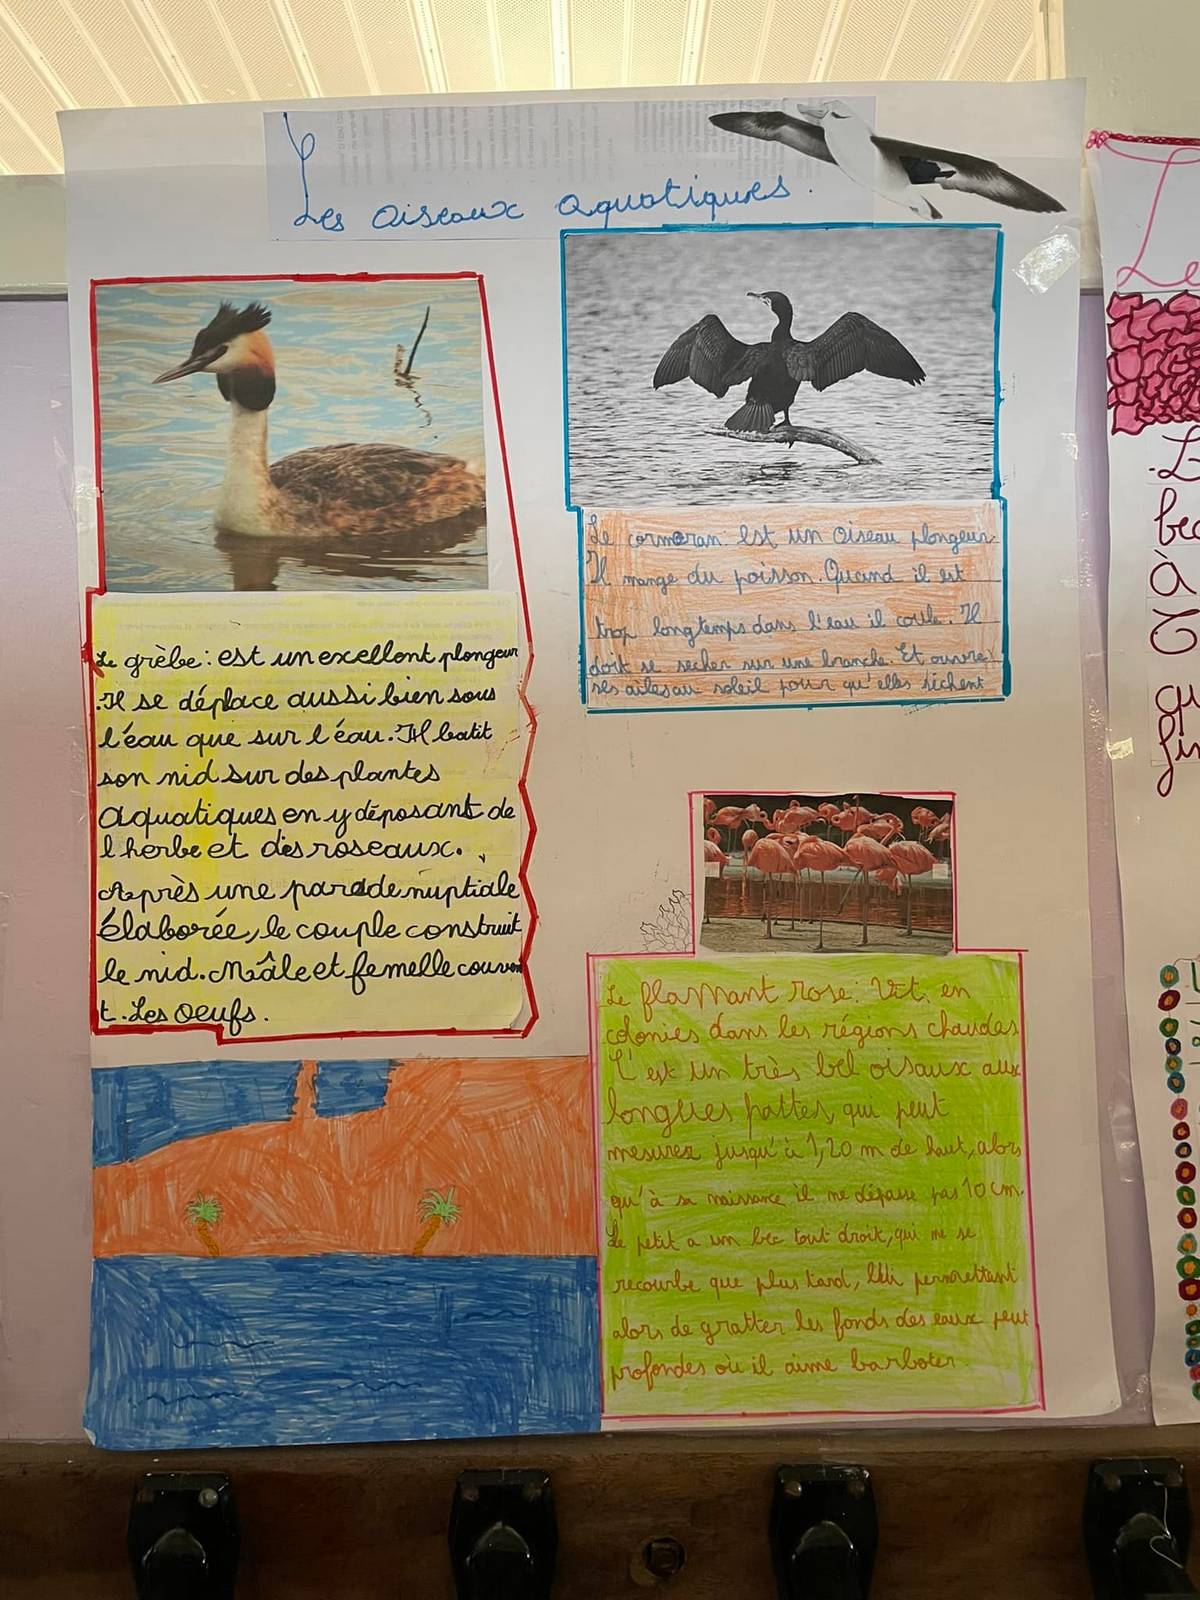 Les Oiseaux Aquatiques.
Le grèbe: est un excellent plongeur
Il se déplace aussi bien sous
l'éau que sur l'éau. Il batit
son nid sur des plantes
Aquatiques en y déposant de
l'herbe et des roseaux.
Après une parade nuptiale
élaborée, le couple construit
le nid. Mâle et femelle couven
t. Les Oeufs.
Le cormoran: Est un Oiseau plongeur.
Il mange du poisson. Quand il est
trop longtemps dans l'eau il coule. Il
doit se secher sur une branche. Et ouvre
ses ailes au soleil pour qu'elles sèchent
Le flammant rose: Vit en
colonies dans les régions chaudes
C'est un très bel oisaux aux
longues pattes, qui peut
mesurer jusqu'à 1,20 m de haut, alors
qu'à sa naissance il ne dépasse pas 10 cm.
Le petit a un bec tout droit, qui ne se
recourbe que plus tard, lui permettant
alors de gratter les fonds des eaux peut
profondes où il aime barboter.
Le
bec
à
qu